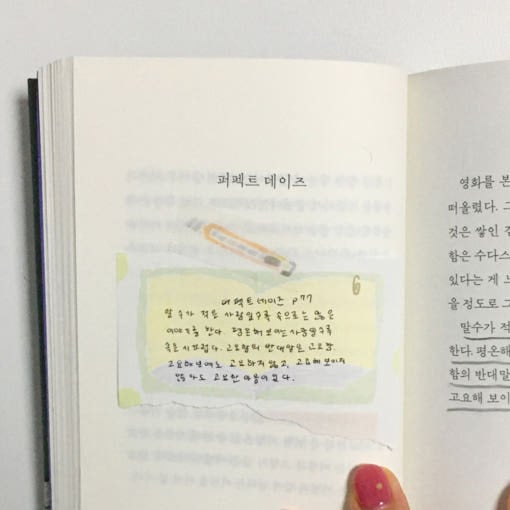 퍼펙트 데이즈
퍼펙트 데이즈 p77
말수가 적은 사람일수록 속으로는 많은
이야기를 한다. 평온해 보이는 사람일수록
속은 시끄럽다. 고요함의 반대말은 고요함.
고요해 보여도 고요하지 않고, 고요해 보이지
않아도 고요한 마음이 있다.
영화를 본
떠올렸다. 그
것은 쌓인 감
함은 수다스
있다는 게 느
을 정도로 그
말수가 적
한다. 평온해
함의 반대말
고요해 보이